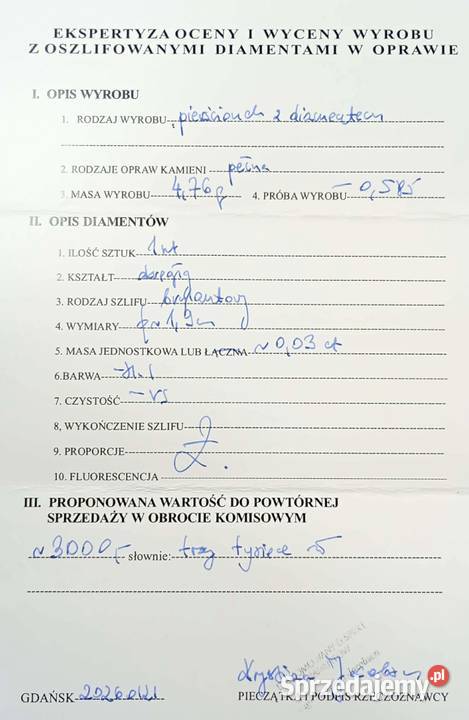 EKSPERTYZA OCENY I WYCENY WYROBU
Z OSZLIFOWANYMI DIAMENTAMI W OPRAWIE
I. OPIS WYROBU
1. RODZAJ WYROBU pierścionek z diamentem
2. RODZAJE OPRAW KAMIENI pełna
3. MASA WYROBU 4,76 g 4. PRÓBA WYROBU – 0,585
II. OPIS DIAMENTÓW
1. ILOŚĆ SZTUK 1 szt
2. KSZTAŁT okrągły
3. RODZAJ SZLIFU brylantowy
4. WYMIARY ~ 1,9
5. MASA JEDNOSTKOWA LUB ŁĄCZNA ~ 0,03 ct
6.BARWA
7. CZYSTOŚĆ – VS
8. WYKOŃCZENIE SZLIFU
9. PROPORCJE
10. FLUORESCENCJA
III. PROPONOWANA WARTOŚĆ DO POWTÓRNEJ
SPRZEDAŻY W OBROCIE KOMISOWYM
~ 3000,- słownie: trzy tysiące zł
GDAŃSK
PIECZĄTKA I PODPIS RZECZOZNAWCY
Sprzedajemy.pl